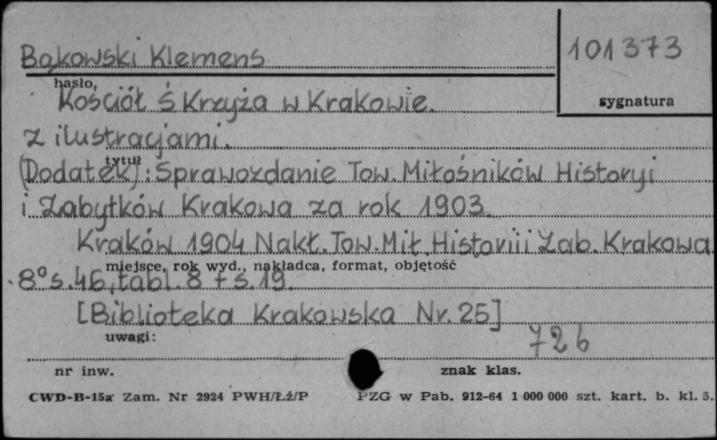 Bąkowski Klemens
101373
hasło,
sygnatura
Kościół ś Krzyża w Krakowie.
z ilustracjami.
tytuł
(Dodatek): Sprawozdanie Tow. Miłośników Historyi
i Zabytków Krakowa za rok 1903.
Kraków 1904 Nakł. Tow. Mił. Historii i Zab. Krakowa
miejsce, rok wyd., nakładca, format, objętość
8° s. 46, tabl. 8 + s. 19.
[Biblioteka Krakowska Nr. 25]
uwagi:
726
nr inw.
znak klas.
CWD-B-15a Zam. Nr 2924 PWH/Łź/P PZG w Pab. 912-64 1 000 000 szt. kart. b. kl. 5.